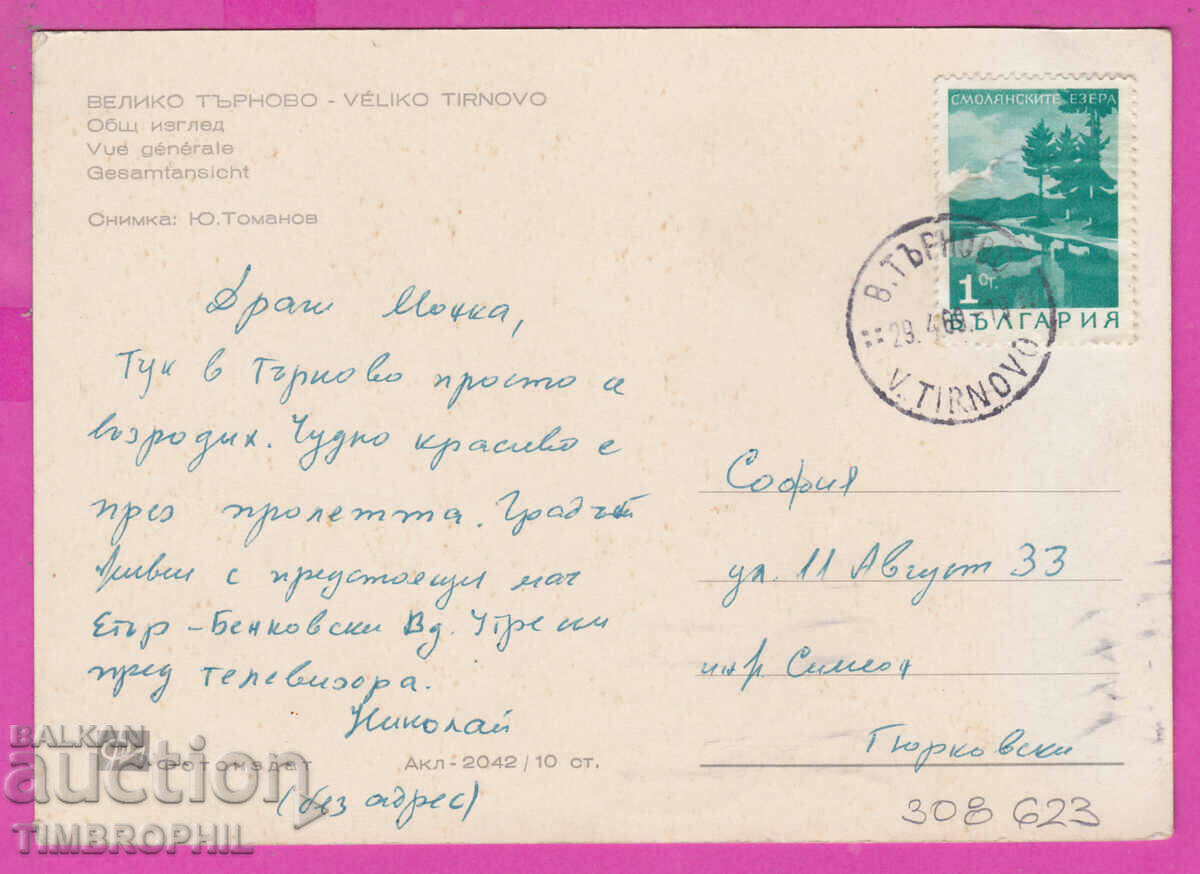 ВЕЛИКО ТЪРНОВО - VÉLIKO TIRNOVO
Общ изглед
Vue générale
Gesamtansicht
Снимка: Ю.Томанов
Драги Мончка,
Тук в Търново просто се
възродих. Чудно красиво е
през пролетта. Градът
живи с предстоещия мач
Етър - Бенковски Вд. Утре си
пред телевизора.
Николай
(без адрес)
Фотоиздат
Акл-2042/10 ст.
СМОЛЯНСКИТЕ ЕЗЕРА
1 ст.
БЪЛГАРИЯ
В. ТЪРНОВО
29. 4.69.-13
V. TIRNOVO
София
ул. 11 Август 33
инж. Симеон
Гюрковски
308 623
BALKAN
auction
TIMBROPHIL